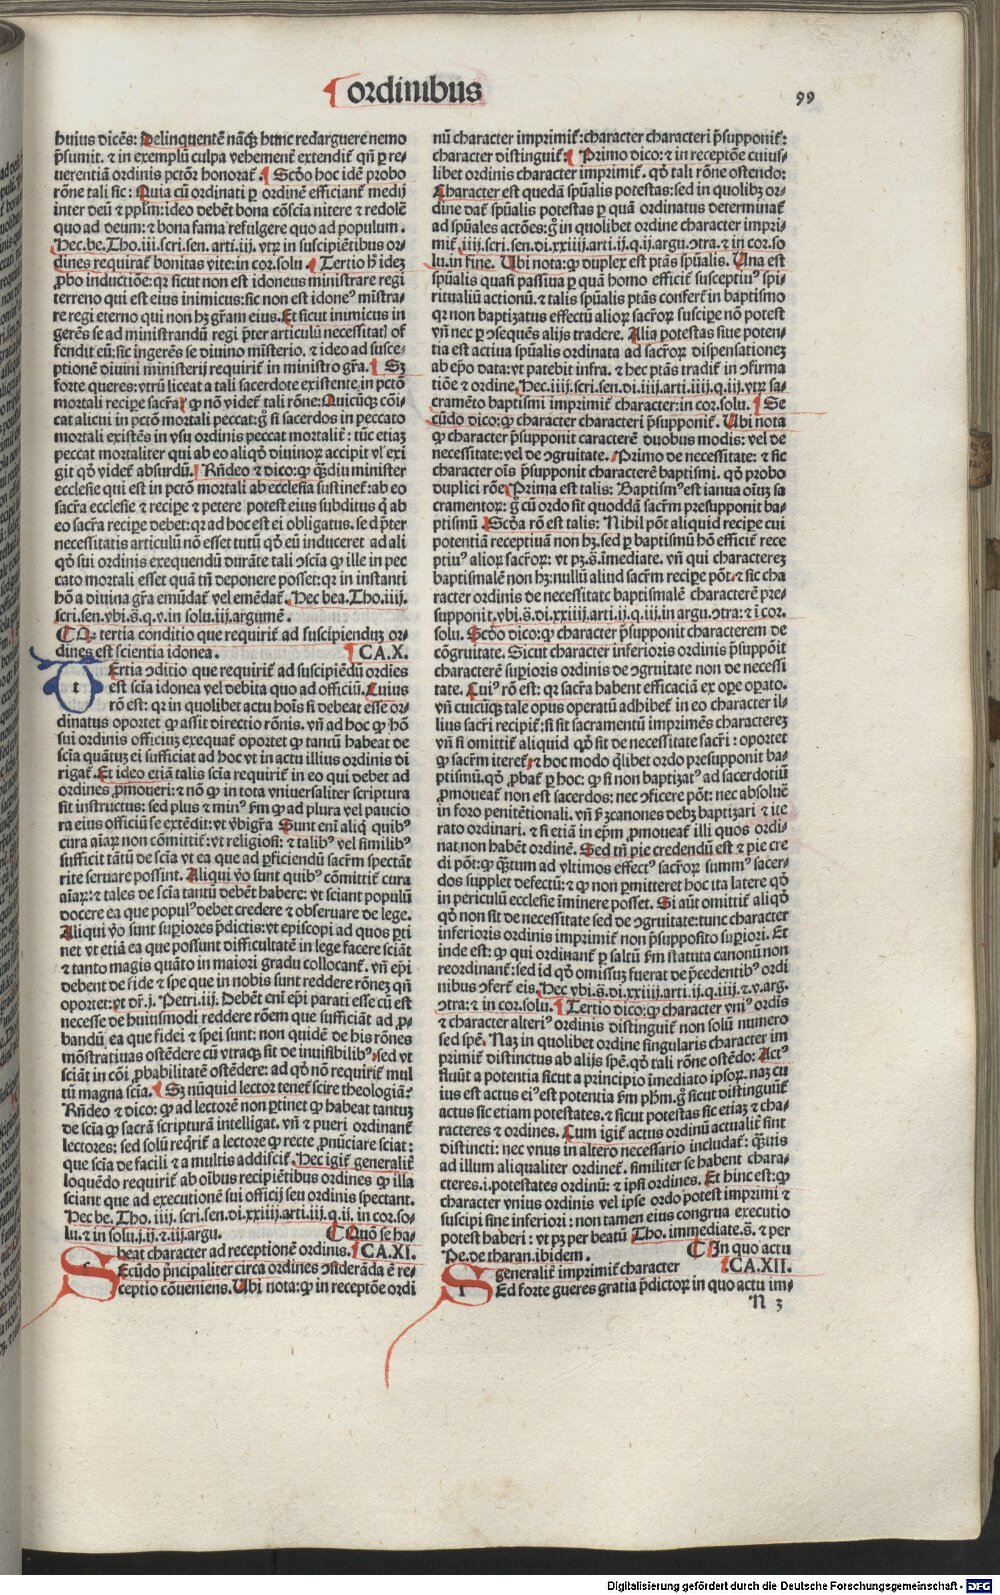 ordinibus
99
huius dicẽs: Delinquentẽ nãq̃ hunc redarguere nemo
p̃sumit. ⁊ in exemplũ culpa vehement̃ extendit̃ qñ p re-
uerentiã ordinis pctõr honorat̃. Scďo hoc idẽ probo
rõne tali sic: Quia cũ ordinati p ordinẽ efficiant̃ medij
inter deũ ⁊ pplm: ideo debẽt bona cõscĩa nitere ⁊ redolẽ
quo ad deum: ⁊ bona fama refulgere quo ad populum.
Hec. be. Tho. iii. scri. sen. arti. iii. vtꝝ in suscipiẽtibus or-
dines requirat̃ bonitas vite: in cor. solu. Tertio h̃ idez
ꝓbo inductiõe: qꝛ sicut non est idoneus ministrare regi
terreno qui est eius inimicus: sic non est idoneꝰ mĩstra-
re regi eterno qui non hꝫ gr̃am eius. Et sicut inimicus in
gerẽs se ad ministrandũ regi p̃ter articulũ necessitat̃ of
fendit eũ: sic ingerẽs se diuino mĩsterio. ⁊ ideo ad susce-
ptionẽ diuini ministerij requirit̃ in ministro gr̃a. Sꝫ
forte queres: vtrũ liceat a tali sacerdote existente in pctõ
mortali recipe sacr̃a: ꝙ nõ videt̃ tali rõne: Quicũqꝫ cõi-
cat alicui in pctõ mortali peccat: g̊ si sacerdos in peccato
mortali existẽs in vsu ordinis peccat mortalit̃: tũc etiaꝫ
peccat mortaliter qui ab eo aliqď diuinoꝝ accipit vl̃ exi
git qď videt̃ absurdũ. Rñdeo ⁊ dico: ꝙ q̃diu minister
ecclesie qui est in pctõ mortali ab ecclesia sustinet̃: ab eo
sacr̃a ecclesie ⁊ recipe ⁊ petere potest eius subditus q̃ ab
eo sacr̃a recipe debet: qꝛ ad hoc est ei obligatus. sed p̃ter
necessitatis articulũ nõ esset tutũ qď eũ induceret ad ali
qď sui ordinis exequendũ durãte tali ɔscĩa ꝙ ille in pec
cato mortali esset quã tñ deponere posset: qꝛ in instanti
hõ a diuina gr̃a emũdat̃ vel emẽdat̃. Hec bea. Tho. iiij.
scri. sen. vbi. s̃. q. v. in solu. iii. argumẽ.
Q tertia conditio que requirit̃ ad suscipienduꝫ or-
dines est scientia idonea. CA. X.
Tertia ɔditio que requirit̃ ad suscipiẽdũ ordiẽs
est scĩa idonea vel debita quo ad officiũ. Cuius
rõ est: qꝛ in quolibet actu hoĩs si debeat esse or-
dinatus oportet ꝙ assit directio rõnis. vñ ad hoc ꝙ hõ
sui ordinis officiuꝫ exequat̃ oportet ꝙ tantũ habeat de
scĩa quãtuꝫ ei sufficiat ad hoc vt in actu illius ordinis di
rigat̃. Et ideo etiã talis scĩa requirit̃ in eo qui debet ad
ordines ꝓmoueri: ⁊ nõ ꝙ in tota vniuersaliter scriptura
sit instructus: sed plus ⁊ minꝰ ẜm ꝙ ad plura vel paucio
ra eius officiũ se extẽdit: vt v̓bigr̃a Sunt enĩ aliq̃ quibꝰ
cura aĩaꝝ non cõmittit̃: vt religiosi: ⁊ talibꝰ vel similibꝰ
sufficit tãtũ de scĩa vt ea que ad ꝑficiendũ sacr̃m spectãt
rite seruare possint. Aliqui v̓o sunt quibꝰ cõmittit̃ cura
aĩaꝝ: ⁊ tales de scĩa tantũ debẽt habere: vt sciant populũ
docere ea que populꝰ debet credere ⁊ obseruare de lege.
Aliqui v̓o sunt supiores p̃dictis: vt episcopi ad quos pti
net vt etiã ea que possunt difficultatẽ in lege facere sciãt
⁊ tanto magis quãto in maiori gradu collocant̃. vñ ep̃i
debent de fide ⁊ spe que in nobis sunt reddere rõneꝫ qñ
oportet: vt dr̃. j. Petri. iij. Debẽt enĩ ep̃i parati esse cũ est
necesse de huiusmodi reddere rõem que sufficiãt ad ꝓ-
bandũ ea que fidei ⁊ spei sunt: non quidẽ de his rõnes
mõstratiuas ostẽdere cũ vtraqꝫ sit de inuisibilibꝰ, sed vt
sciãt in cõi ꝓbabilitatẽ ostẽdere: ad qď nõ requirit̃ mul
tũ magna scĩa. Sꝫ nũquid lector tenet̃ scire theologiã?
Rñdeo ⁊ dico: ꝙ ad lectorẽ non ptinet ꝙ habeat tantuꝫ
de scĩa ꝙ sacrã scripturã intelligat. vñ ⁊ pueri ordinant̃
lectores: sed solũ req̃rit̃ a lectore ꝙ recte ꝓnũciare sciat:
que scĩa de facili ⁊ a multis addiscit̃. Hec igit̃ generalit̃
loquẽdo requirit̃ ab oĩbus recipiẽtibus ordines ꝙ illa
sciant que ad executionẽ sui officij seu ordinis spectant.
Hec be. Tho. iiij. scri. sen. di. xxiiij. arti. iij. q. ii. in cor. so-
lu. ⁊ in solu. j. ij. ⁊ iij. argu. Quõ se ha-
beat character ad receptionẽ ordinis. CA. XI.
SEcũdo p̃ncipaliter circa ordines ɔsiderãda ẽ re-
ceptio cõueniens. Ubi nota: ꝙ in receptõe ordi
nũ character imprimit̃: character characteri p̃supponit̃:
character distinguit̃. Primo dico: ⁊ in receptõe cuius-
libet ordinis character imprimit̃. qď tali rõne ostendo:
Character est quedã sp̃ualis potestas: sed in quolibꝫ or-
dine dat̃ sp̃ualis potestas p quã ordinatus determinat̃
ad sp̃uales actões: g̊ in quolibet ordine character impri-
mit̃. iiij. scri. sen. di. xxiiij. arti. ij. q. ij. argu. ɔtra. ⁊ in cor. so
lu. in fine. Ubi nota: ꝙ duplex est ptãs sp̃ualis. Una est
sp̃ualis quasi passiua p quã homo efficit̃ susceptiuꝰ spi
ritualiũ actionũ. ⁊ talis sp̃ualis ptãs confert̃ in baptismo
qꝛ non baptizatus effectũ alioꝝ sacr̃oꝝ suscipe nõ potest
vñ nec p ɔsequẽs alijs tradere. Alia potestas siue poten-
tia est actiua sp̃ualis ordinata ad sacr̃oꝝ dispensationeꝫ
ab ep̃o data: vt patebit infra. ⁊ hec ptãs tradit̃ in ɔfirma
tiõe ⁊ ordine. Hec. iiij. scri. sen. di. iiij. arti. iiij. q. iij. vtꝝ sa-
cramẽto baptismi imprimit̃ character: in cor. solu. Se
cũdo dico: ꝙ character characteri p̃supponit̃. Ubi nota
ꝙ character p̃supponit caracterẽ duobus modis: vel de
necessitate: vel de ɔgruitate. Primo de necessitate: ⁊ sic
character oĩs p̃supponit characterẽ baptismi. qď probo
duplici rõe. Prima est talis: Baptismꝰ est ianua oĩuꝫ sa
cramentoꝝ: g̊ cũ ordo sit quoddã sacr̃m presupponit ba-
ptismũ. Scďa rõ est talis: Nihil põt aliquid recipe cui
potentiã receptiuã non hꝫ. sed p baptismũ hõ efficit̃ rece
ptiuꝰ alioꝝ sacr̃oꝝ: vt pꝫ. s̃. ĩmediate. vñ qui characterez
baptismalẽ non hꝫ: nullũ aliud sacr̃m recipe põt, ⁊ sic cha
racter ordinis de necessitate baptismalẽ characterẽ pre-
supponit. vbi. s̃. di. xxiiij. arti. ij. q. iij. in argu. ɔtra: ⁊ ĩ cor.
solu. Scďo dico: ꝙ character p̃supponit characterem de
cõgruitate. Sicut character inferioris ordinis p̃suppõit
characterẽ supioris ordinis de ɔgruitate non de necessi
tate. Cuiꝰ rõ est: qꝛ sacr̃a habent efficaciã ex ope opato.
vñ cuicũqꝫ tale opus operatũ adhibet̃ in eo character il-
lius sacr̃i recipit̃: si sit sacramentũ imprimẽs characterez
vñ si omittit̃ aliquid qď sit de necessitate sacr̃i: oportet
ꝙ sacr̃m iteret̃, ⁊ hoc modo q̃libet ordo presupponit ba-
ptismũ. qď ꝓbat̃ p hoc: ꝙ si non baptizatꝰ ad sacerdotiũ
ꝓmoueat̃ non est sacerdos: nec ɔficere põt: nec absoluẽ
in foro penitẽtionali. vñ ẜꝫ canones debꝫ baptizari ⁊ ite
rato ordinari. ⁊ si etiã in ep̃m ꝓmoueat̃ illi quos ordi-
nat, non habẽt ordinẽ. Sed tñ pie credendũ est ⁊ pie cre
di põt: ꝙ q̃tum ad vltimos effectꝰ sacr̃oꝝ summꝰ sacer-
dos supplet defectũ: ⁊ ꝙ non pmitteret hoc ita latere qď
in periculũ ecclesie ĩminere posset. Si aũt omittit̃ aliqď
qď non sit de necessitate sed de ɔgruitate: tunc character
inferioris ordinis imprimit̃ non p̃supposito supiori. Et
inde est: ꝙ qui ordinant̃ p saltũ ẜm statuta canonũ non
reordinant̃: sed id qď omissuꝫ fuerat de p̃cedentibꝰ ordi
nibus ɔfert̃ eis. Hec vbi. s̃. di. xxiiij. arti. ij. q. iij. ⁊. v. arg.
ɔtra: ⁊ in cor. solu. Tertio dico: ꝙ character vniꝰ ordis
⁊ character alteriꝰ ordinis distinguit̃ non solũ numero
sed spẽ. Naꝫ in quolibet ordine singularis character im
primit̃ distinctus ab alijs spẽ. qď tali rõne ostẽdo: Actꝰ
fluũt a potentia sicut a principio ĩmediato ipsoꝝ. naꝫ cu
ius est actus eiꝰ est potentia ẜm ph̃m. g̊ sicut distinguũt̃
actus sic etiam potestates. ⁊ sicut potestas sic etiaꝫ ⁊ cha-
racteres ⁊ ordines. Cum igit̃ actus ordinũ actualit̃ sint
distincti: nec vnus in altero necessario includat̃: q̃uis
ad illum aliqualiter ordinet̃. similiter se habent chara-
cteres. i. potestates ordinũ: ⁊ ipsi ordines. Et hinc est: ꝙ
character vnius ordinis vel ipse ordo potest imprimi ⁊
suscipi sine inferiori: non tamen eius congrua executio
potest haberi: vt pꝫ per beatũ Tho. immediate. s̃. ⁊ per
Pe. de tharan. ibidem. In quo actu
generalit̃ imprimit̃ character CA. XII.
SEd forte queres gratia p̃dictoꝝ in quo actu im-
N 3
Digitalisierung gefördert durch die Deutsche Forschungsgemeinschaft - DFG